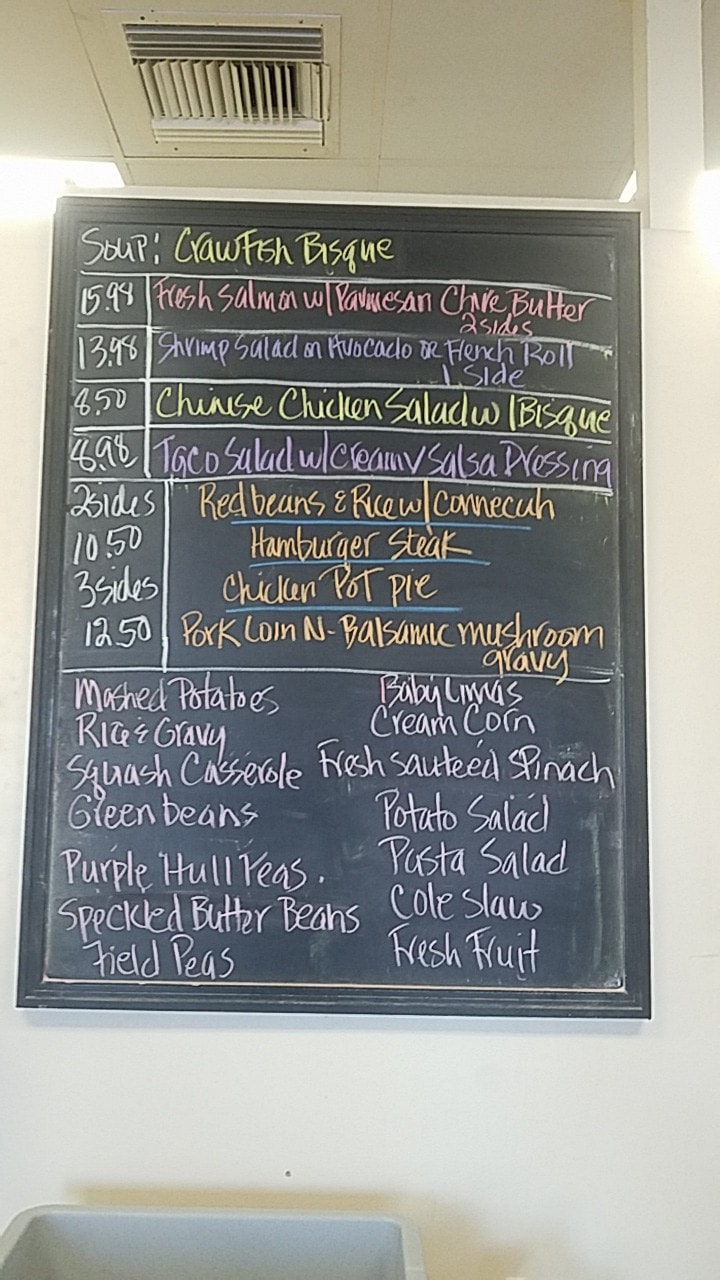 Soup: Crawfish Bisque
15.98 Fresh Salmon w/ Parmesan Chive Butter
2 sides
13.98 Shrimp Salad on Avocado or French Roll
1 Side
8.50 Chinese Chicken Salad w/ Bisque
8.98 Taco Salad w/ Creamy Salsa Dressing
2 sides Red beans & Rice w/ Connecuh
10.50 Hamburger Steak
3 sides Chicken Pot pie
12.50 Pork Loin N- Balsamic mushroom
gravy
Mashed Potatoes Baby Limas
Rice & Gravy Cream Corn
Squash Casserole Fresh sauteed Spinach
Green beans Potato Salad
Purple Hull Peas. Pasta Salad
Speckled Butter Beans Cole slaw
Field Peas Fresh Fruit